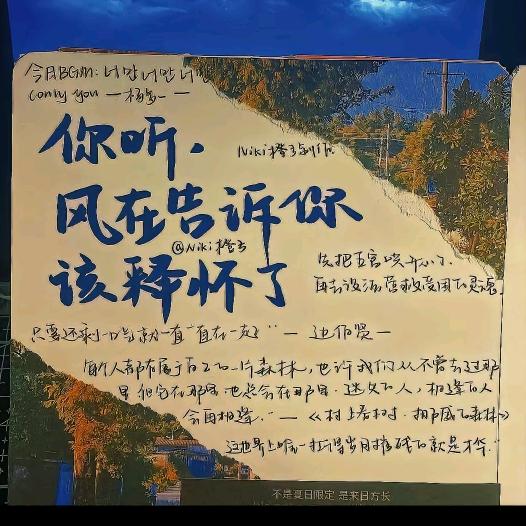 今日BGM: 너만너만너만
(only you — 杨多一 —
你听，
Niki橙子创作
风在告诉你
@Niki橙子
该释怀了
先把五官哄开心了，
再去设法营救受困的灵魂
只要还剩一口气就一直 "直在一起了" — 边伯贤 —
每个人都有属于自己的一片森林，也许我们从不曾去过那
里 但它在那里 也总会在那里。迷失的人，相逢的人
会再相逢。" — 《村上春树·挪威的森林》
这世界上唯一扛得岁月摧残的就是才华."
不是夏日限定 是来日方长